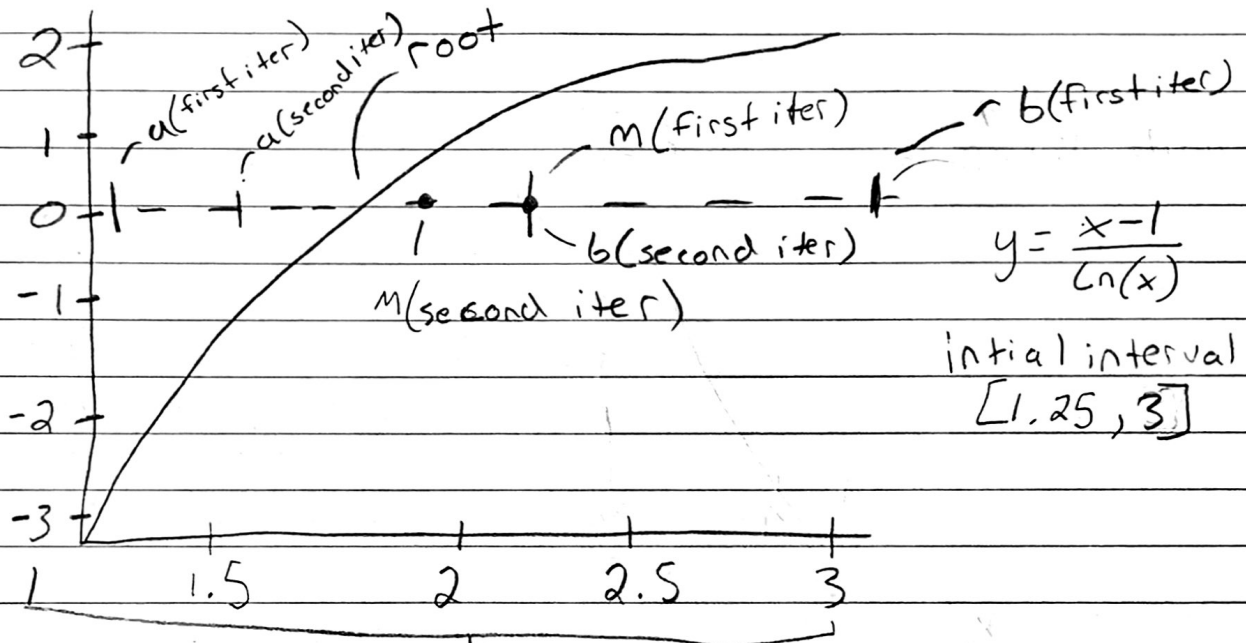 2
a(first iter)
a(second iter)
root
m(first iter)
b(first iter)
1
0
b(second iter)
y = x-1 / ln(x)
-1
M(second iter)
intial interval
[1.25, 3]
-2
-3
1 1.5 2 2.5 3